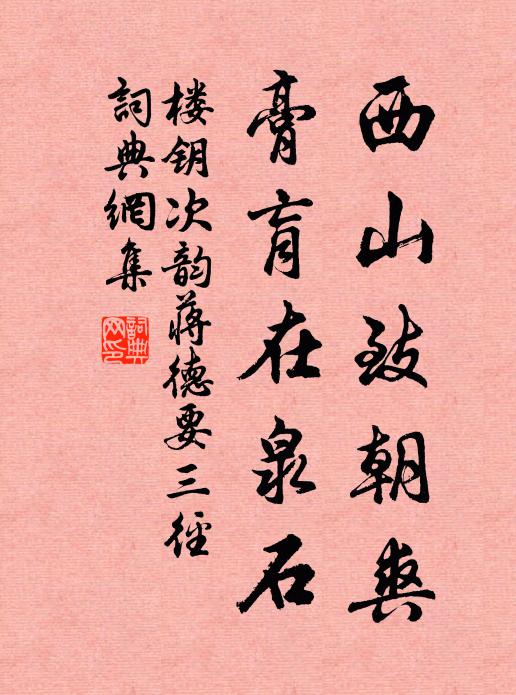 西山致朝爽
膏肓在泉石
楼钥次韵蒋德要三径
詞典網集
詞典網印